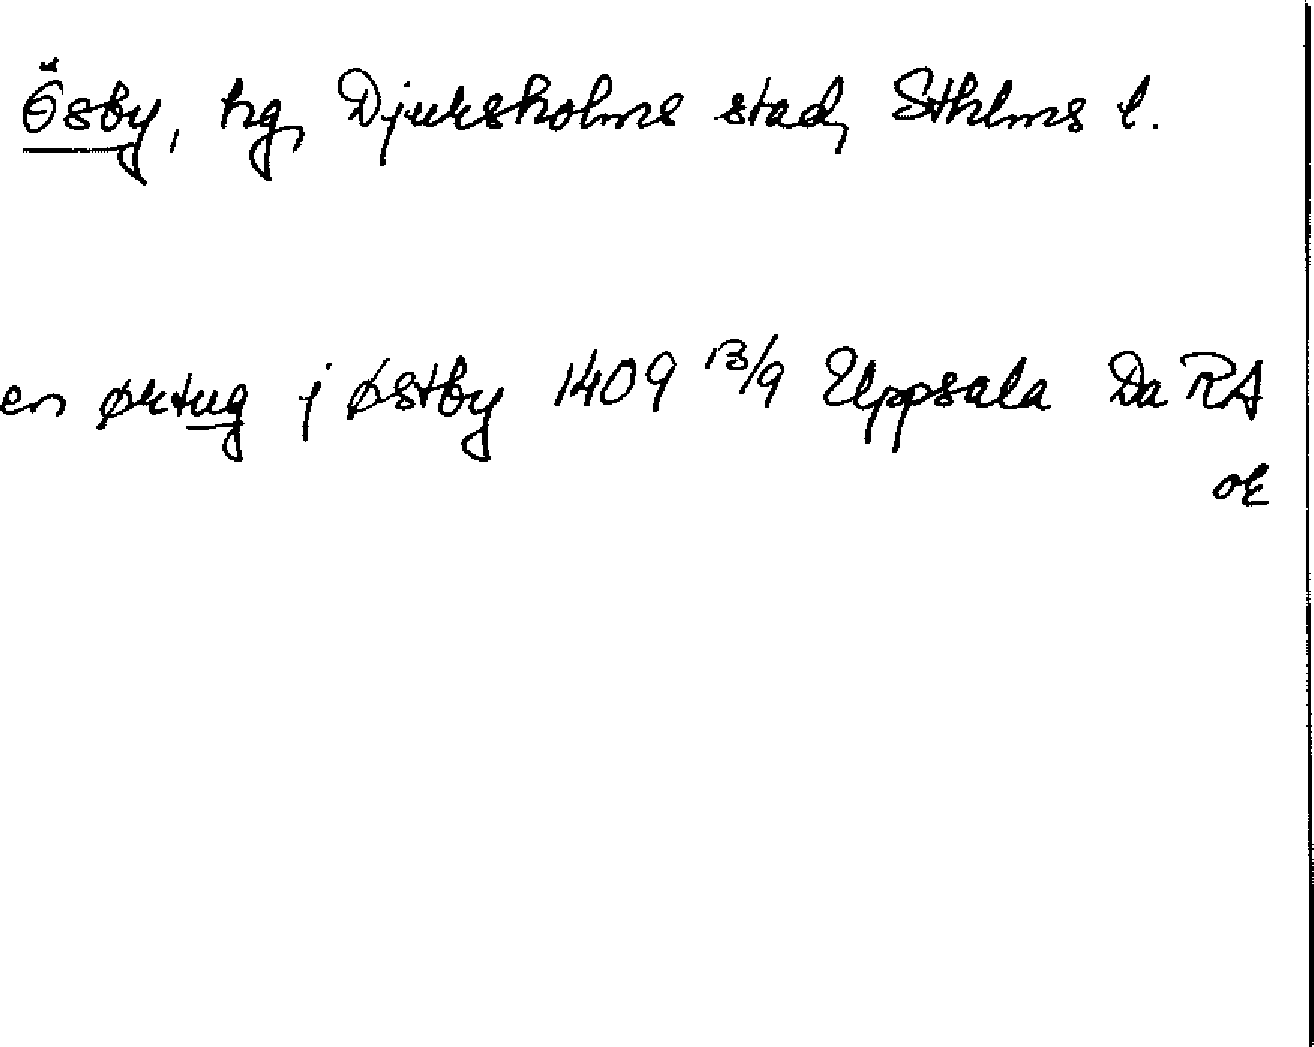 Ösby, hg, Djursholms stad, Sthlms l.
en ørtug j østby 1409 13/9 Uppsala Da RA
oE